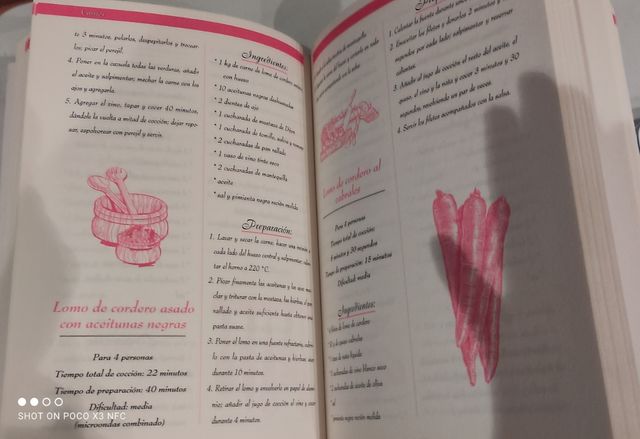 Carnes
te 3 minutos, pelarlos, despepitarlos y trocear-
los; picar el perejil.
4. Poner en la cazuela todas las verduras, añadir
el aceite y salpimentar; mechar la carne con los
ajos y agregarla.
5. Agregar el vino; tapar y cocer 40 minutos,
dándole la vuelta a mitad de cocción; dejar repo-
sar, espolvorear con perejil y servir.
Lomo de cordero asado
con aceitunas negras
Para 4 personas
Tiempo total de cocción: 22 minutos
Tiempo de preparación: 40 minutos
Dificultad: media
(microondas combinado)
Ingredientes:
* 1 kg de carne de lomo de cordero,
con hueso
* 10 aceitunas negras deshuesadas
* 2 dientes de ajo
* 1 cucharada de mostaza de Dijon
* 1 cucharada de tomillo, salvia y romero
* 2 cucharadas de pan rallado
* 1 vaso de vino tinto seco
* 2 cucharadas de mantequilla
* aceite
* sal y pimienta negra recién molida
Preparación:
1. Lavar y secar la carne; hacer una incisión a
cada lado del hueso central y salpimentar;
tar el horno a 220 °C.
2. Picar finamente las aceitunas y los ajos;
clar y triturar con la mostaza, las hierbas, el pan
rallado y aceite suficiente hasta obtener una
pasta suave.
3. Poner el lomo en una fuente refractaria;
lo con la pasta de aceitunas y hierbas; asar
durante 10 minutos.
4. Retirar el lomo y envolverlo en papel de
nio; añadir el jugo de cocción el vino y cocer
durante 4 minutos.
Lomo de cordero al
cabrales
Para 4 personas
Tiempo total de cocción:
6 minutos y 30 segundos
Tiempo de preparación: 15 minutos
Dificultad: media
Ingredientes:
filetes de lomo de cordero
de queso cabrales
de nata líquida
cucharadas de vino blanco seco
cucharadas de aceite de oliva
sal
pimienta negra recién molida
1. Calentar la fuente durante
2. Encerrar los filetes y dorarlos 2 minutos y
segundos por cada lado; salpimentar y reservar
calientes.
3. Añadir al jugo de cocción el resto del aceite, el
queso, el vino y la nata y cocer 3 minutos y 30
segundos, revolviendo un par de veces.
4. Servir los filetes acompañados con la salsa.
SHOT ON POCO X3 NFC